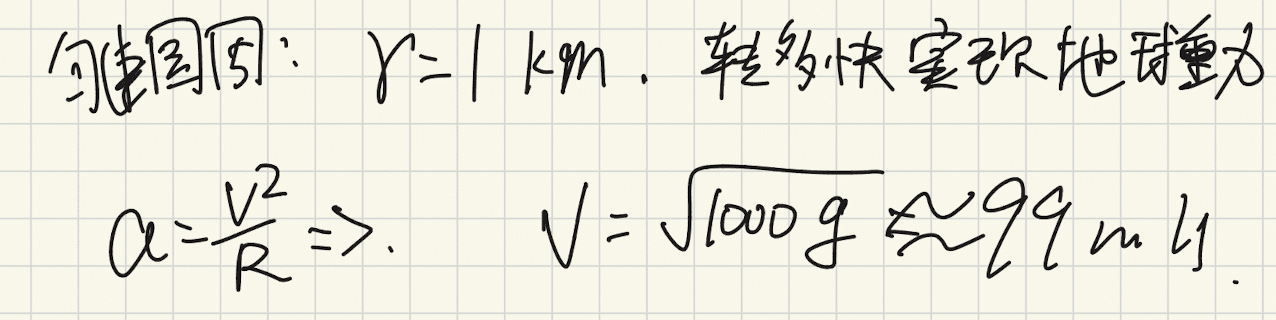 匀速圆周: r=1 km. 转多快实现地球重力
a = v²/R => . V = √1000g ≈ 99 m/s.